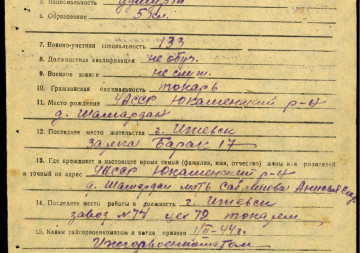 5. Национальность удмурт
6. Образование 5 кл.
7. Военно-учетная специальность 133
8. Должностная квалификация не обуч.
9. Военное звание не служ.
10. Гражданская специальность токарь
11. Место рождения УАССР Юкаменский р-н
д. Шамардан
12. Последнее место жительства г. Ижевск
Барак 17
13. Где проживает в настоящее время семья (фамилия, имя, отчество) жены или родителей
и точный их адрес УАССР Юкаменский р-н
д. Шамардан мать
14. Последнее место работы и должность г. Ижевск
завод №74 цех 79 токарем
15. Каким райгорвоенкоматом и когда призван 1/II-44 г.
Ижгорвоенкоматом